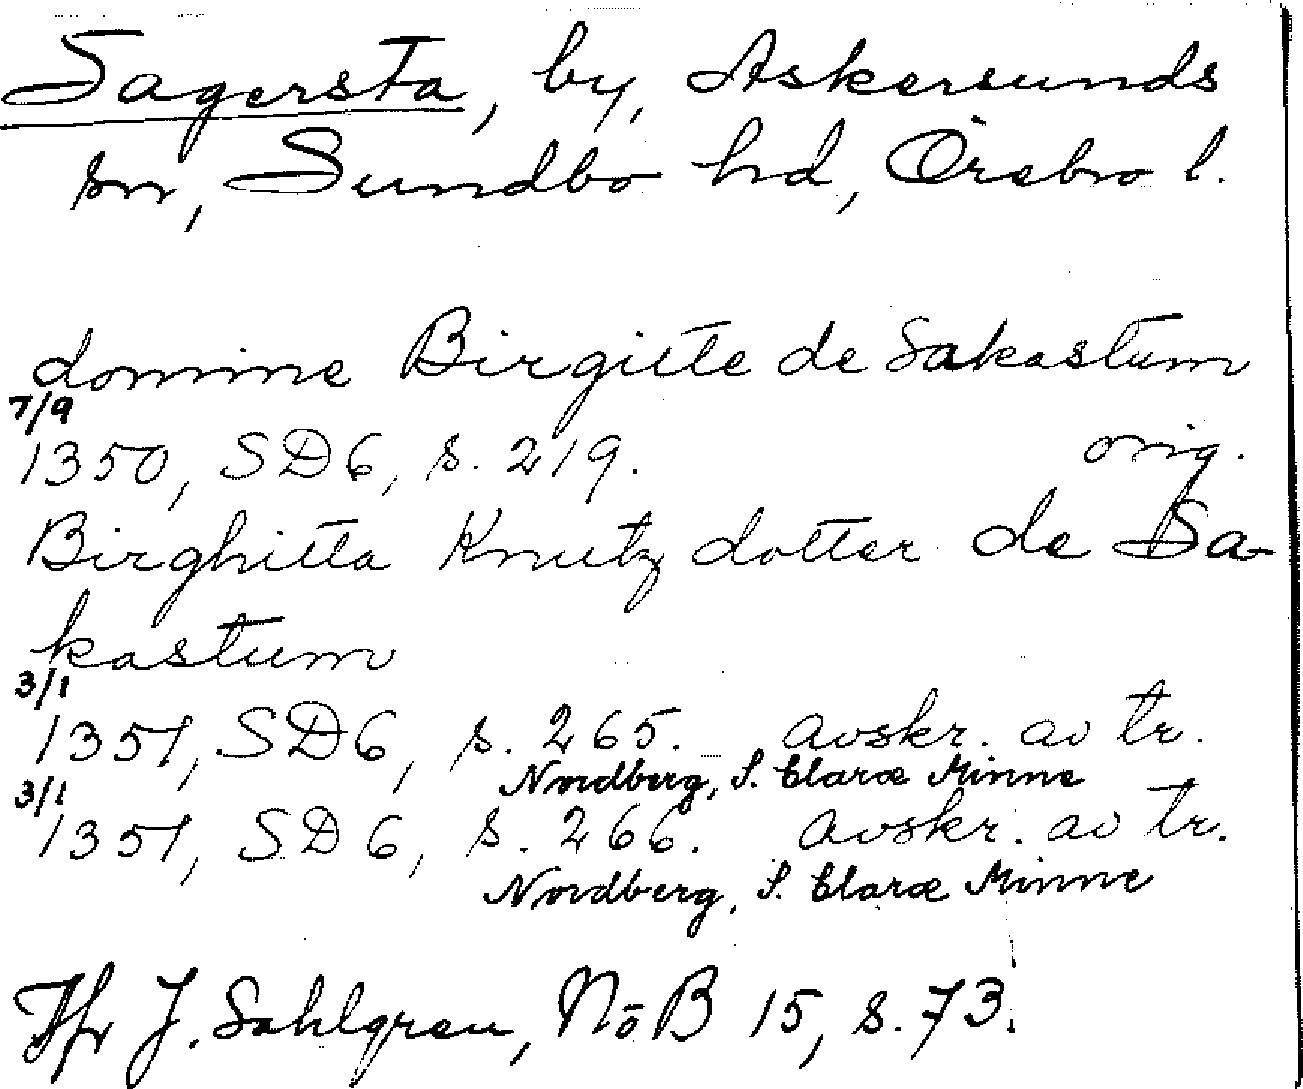 Sagersta, by, Askersunds
sn, Sundbo hd, Örebro l.
domine Birgitte de Sakastum
7/9
1350, SD6, s. 219. orig.
Birghitta Knutz dotter de Sa-
kastum
3/1
1351, SD6, s. 265. avskr. av tr.
Nordberg, S. Claræ Minne
3/1
1351, SD6, s. 266. avskr. av tr.
Nordberg, S. Claræ Minne
Jfr J. Sahlgren, NoB 15, s. 73.